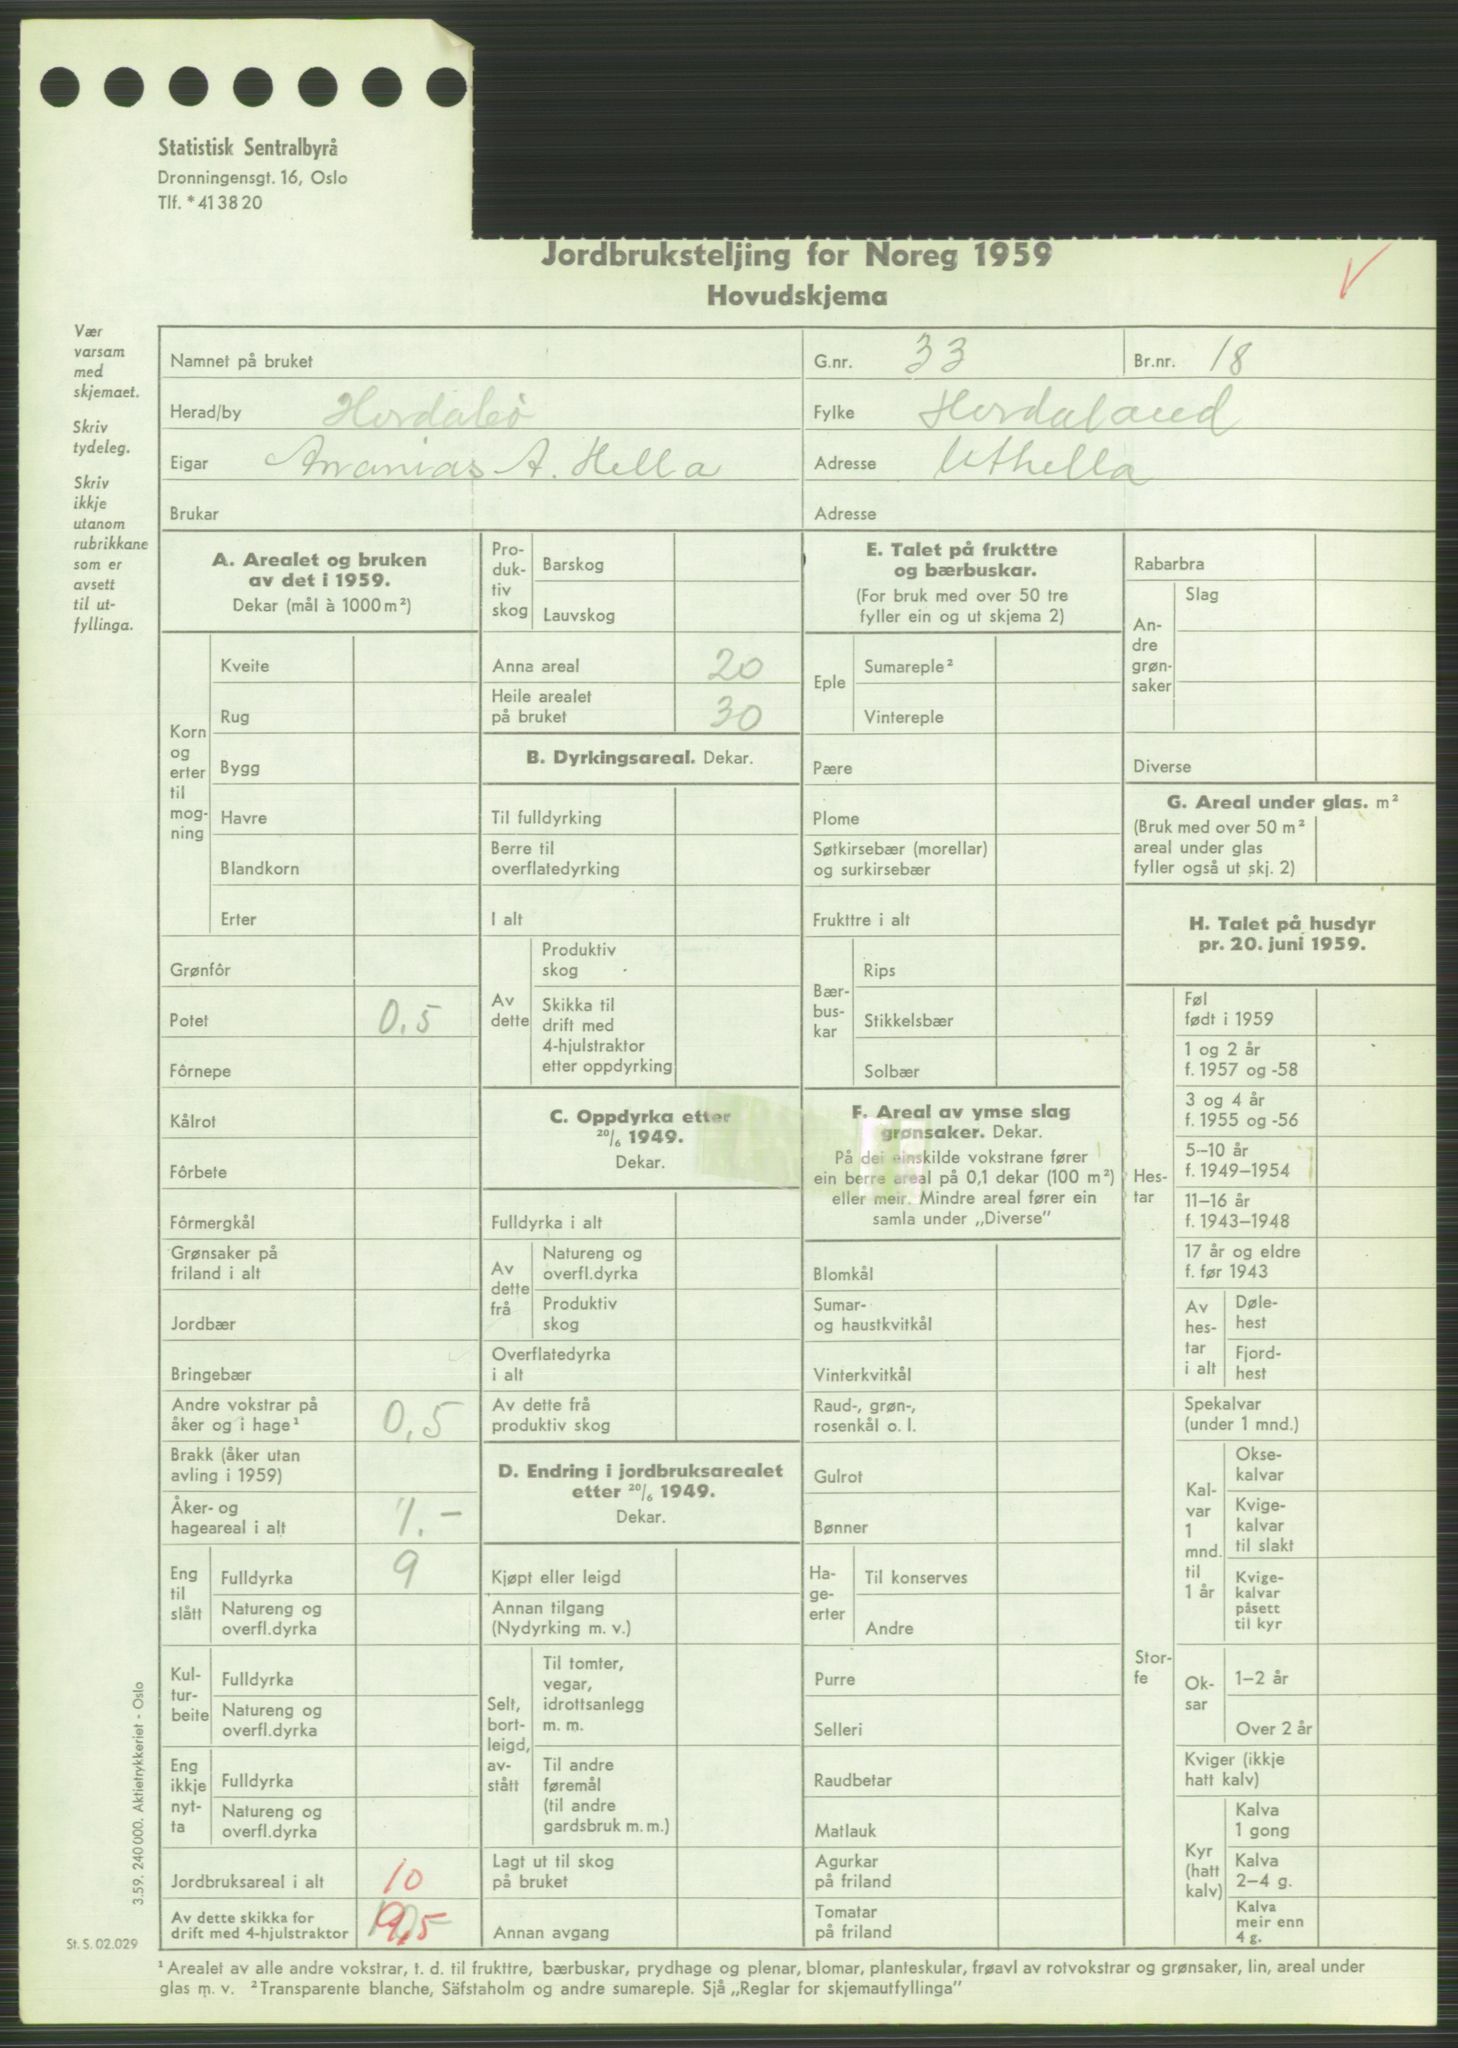 Statistisk Sentralbyrå
Dronningensgt. 16, Oslo
Tlf. * 41 38 20
Jordbruksteljing for Noreg 1959
Hovudskjema
Vær
varsam
med
skjemaet.
Skriv
tydeleg.
Skriv
ikkje
utanom
rubrikkane
som er
avsett
til ut-
fyllinga.
Namnet på bruket
G.nr. 33
Br.nr. 18
Herad/by Hordabø
Fylke Hordaland
Eigar Ananias A. Hella
Adresse Uthella
Brukar
Adresse
A. Arealet og bruken
av det i 1959.
Dekar (mål à 1000 m²)
Korn
og
erter
til
mog-
ning
Kveite
Rug
Bygg
Havre
Blandkorn
Erter
Grønfôr
Potet 0,5
Fôrnepe
Kålrot
Fôrbete
Fôrmergkål
Grønsaker på
friland i alt
Jordbær
Bringebær
Andre vokstrar på
åker og i hage¹ 0,5
Brakk (åker utan
avling i 1959)
Åker- og
hageareal i alt 1.-
Eng
til
slått
Fulldyrka 9
Natureng og
overfl.dyrka
Kul-
tur-
beite
Fulldyrka
Natureng og
overfl.dyrka
Eng
ikkje
nyt-
ta
Fulldyrka
Natureng og
overfl.dyrka
Jordbruksareal i alt 10
Av dette skikka for
drift med 4-hjulstraktor 9,5
Pro-
duk-
tiv
skog
Barskog
Lauvskog
Anna areal 20
Heile arealet
på bruket 30
B. Dyrkingsareal. Dekar.
Til fulldyrking
Berre til
overflatedyrking
I alt
Av
dette
Produktiv
skog
Skikka til
drift med
4-hjulstraktor
etter oppdyrking
C. Oppdyrka etter
20/6 1949.
Dekar.
Fulldyrka i alt
Av
dette
frå
Natureng og
overfl.dyrka
Produktiv
skog
Overflatedyrka
i alt
Av dette frå
produktiv skog
D. Endring i jordbruksarealet
etter 20/6 1949.
Dekar.
Kjøpt eller leigd
Annan tilgang
(Nydyrking m. v.)
Selt,
bort-
leigd,
av-
stått
Til tomter,
vegar,
idrottsanlegg
m. m.
Til andre
føremål
(til andre
gardsbruk m. m.)
Lagt ut til skog
på bruket
Annan avgang
E. Talet på frukttre
og bærbuskar.
(For bruk med over 50 tre
fyller ein og ut skjema 2)
Eple
Sumareple²
Vintereple
Pære
Plome
Søtkirsebær (morellar)
og surkirsebær
Frukttre i alt
Bær-
bus-
kar
Rips
Stikkelsbær
Solbær
F. Areal av ymse slag
grønsaker. Dekar.
På dei einskilde vokstrane fører
ein berre areal på 0,1 dekar (100 m²)
eller meir. Mindre areal fører ein
samla under „Diverse”
Blomkål
Sumar-
og haustkvitkål
Vinterkvitkål
Raud-, grøn-,
rosenkål o. l.
Gulrot
Bønner
Ha-
ge-
erter
Til konserves
Andre
Purre
Selleri
Raudbetar
Matlauk
Agurkar
på friland
Tomatar
på friland
Rabarbra
An-
dre
grøn-
saker
Slag
Diverse
G. Areal under glas. m²
(Bruk med over 50 m²
areal under glas
fyller også ut skj. 2)
H. Talet på husdyr
pr. 20. juni 1959.
Hes-
tar
Føl
født i 1959
1 og 2 år
f. 1957 og -58
3 og 4 år
f. 1955 og -56
5–10 år
f. 1949–1954
11–16 år
f. 1943–1948
17 år og eldre
f. før 1943
Av
hes-
tar
i alt
Døle-
hest
Fjord-
hest
Stor-
fe
Spekalvar
(under 1 mnd.)
Kal-
var
1
mnd.
til
1 år
Okse-
kalvar
Kvige-
kalvar
til slakt
Kvige-
kalvar
påsett
til kyr
Ok-
sar
1–2 år
Over 2 år
Kviger (ikkje
hatt kalv)
Kyr
(hatt
kalv)
Kalva
1 gong
Kalva
2–4 g.
Kalva
meir enn
4 g.
3.59. 240 000. Aktietrykkeriet - Oslo
St. S. 02.029
¹ Arealet av alle andre vokstrar, t. d. til frukttre, bærbuskar, prydhage og plenar, blomar, planteskular, frøavl av rotvokstrar og grønsaker, lin, areal under
glas m. v. ² Transparente blanche, Säfstaholm og andre sumareple. Sjå „Reglar for skjemautfyllinga”